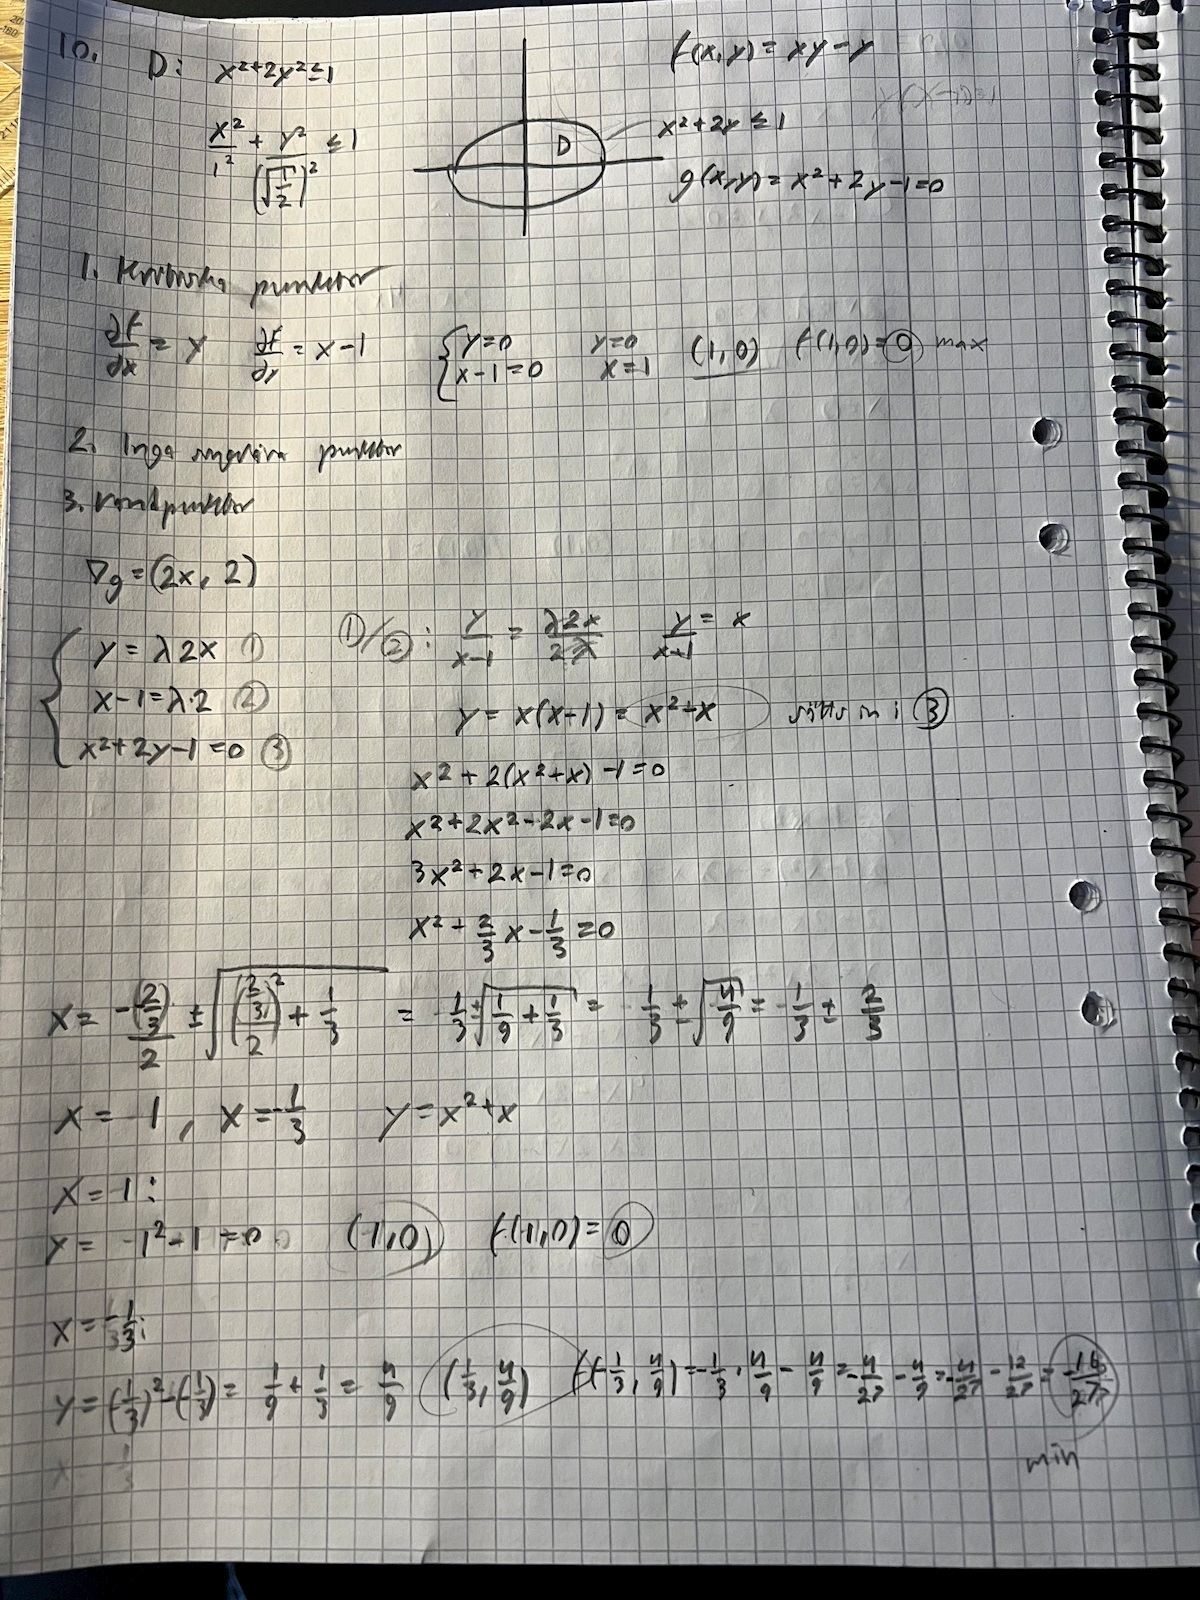 10. D: x²+2y²≤1 f(x,y)=xy-y
x²/1² + y²/(√(1/2))² ≤ 1 D x²+2y≤1
g(x,y)=x²+2y-1=0
1. Kritiska punkter
∂f/∂x = y ∂f/∂y = x-1 { y=0 x-1=0 y=0 x=1 (1,0) f(1,0)=0 max
2. Inga singulära punkter
3. randpunkter
∇g=(2x, 2)
{ y=λ2x ① ①/②: y/(x-1) = λ2x/2λ y/(x-1) = x
x-1=λ·2 ② y=x(x-1)=x²+x sätts in i ③
x²+2y-1=0 ③
x²+2(x²+x)-1=0
x²+2x²-2x-1=0
3x²+2x-1=0
x²+2/3 x-1/3=0
x = -(2/3)/2 ± √(((2/3)/2)² + 1/3) = -1/3 ± √(1/9+1/3) = -1/3 ± √(4/9) = -1/3 ± 2/3
x=-1, x=-1/3 y=x²+x
x=-1:
y= -1²-1=0 (-1,0) f(-1,0)=0
x=-1/3:
y=(-1/3)²-(-1/3)= 1/9+1/3=4/9 (1/3, 4/9) f(-1/3, 4/9)=-1/3·4/9-4/9=-4/27-4/9=-4/27-12/27=-16/27
min